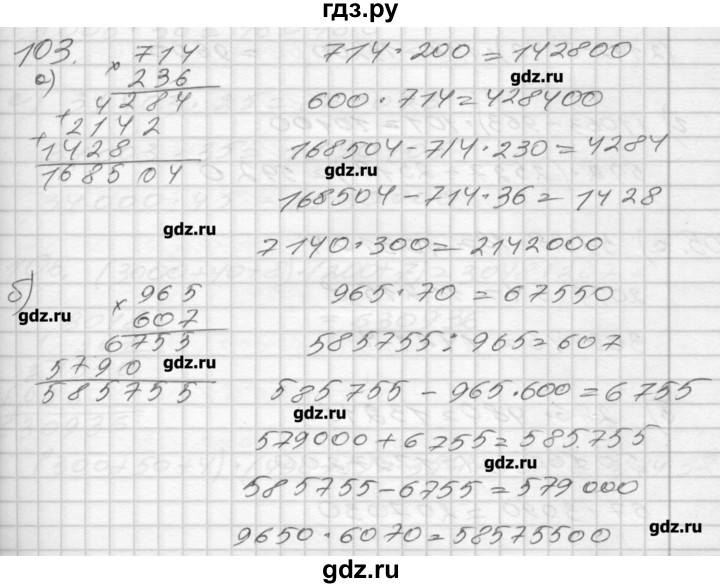 гдз.ру
103.
а)
714
× 236
4284
+ 2142
+ 1428
168504
714 · 200 = 142800
gdz.ru
600 · 714 = 428400
168504 - 714 · 230 = 4284
gdz.ru
168504 - 714 · 36 = 1428
gdz.ru
7140 · 300 = 2142000
б)
965
× 607
6755
5790
585755
gdz.ru
gdz.ru
965 · 70 = 67550
585755 : 965 = 607
585755 - 965 · 600 = 6755
gdz.ru
579000 + 6755 = 585755
gdz.ru
585755 - 6755 = 579000
gdz.ru
9650 · 6070 = 58575500
gdz.ru